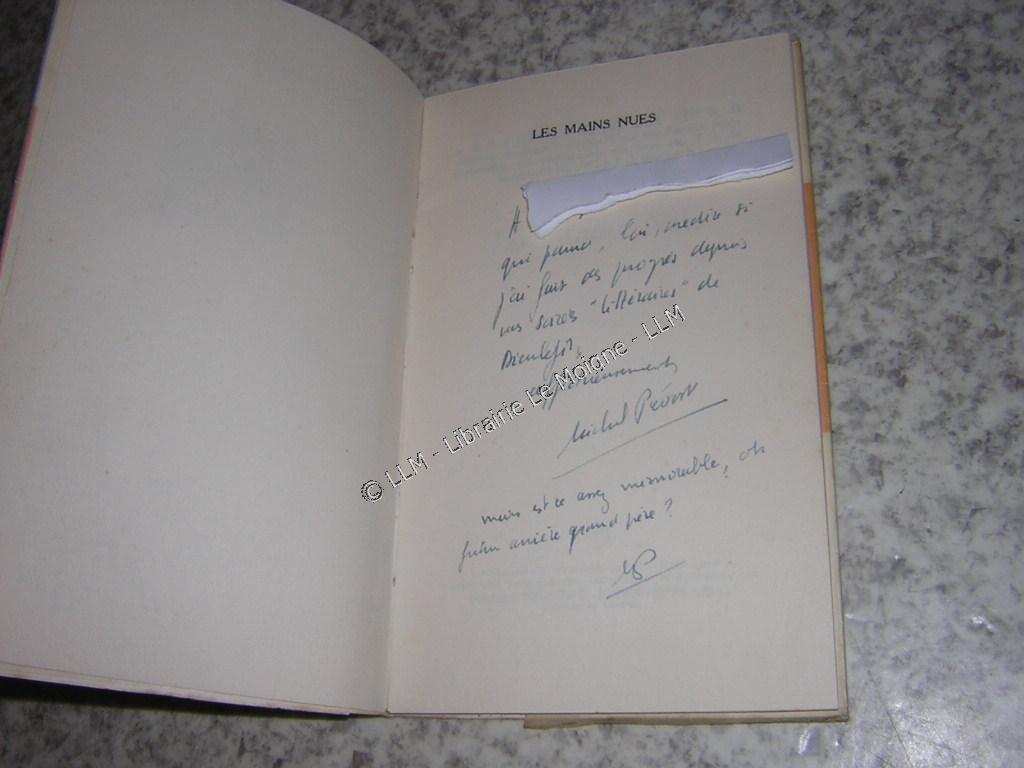 LES MAINS NUES
A
qui pourra, lui, me dire si
j'ai fait des progrès depuis
nos soirées "littéraires" de
Dieulefit,
Michel Prévost
mais est ce assez mémorable, oh
futur arrière grand père?
MP
© LLM - Librairie Le Moigne - LLM